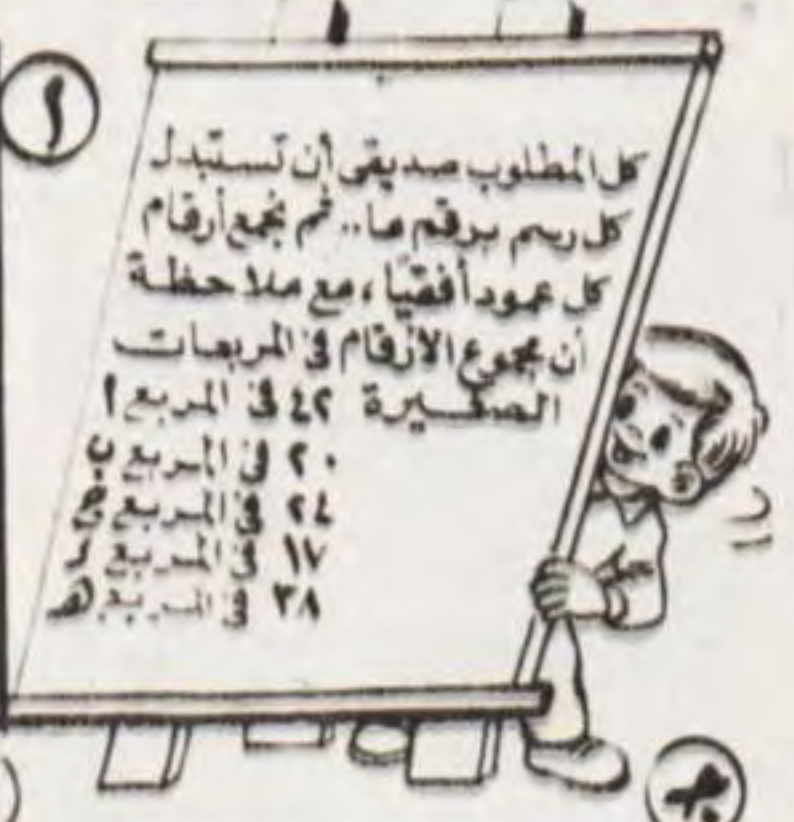 ١
كل المطلوب صديقى أن تستبدل
كل رسم برقم ما.. ثم تجمع أرقام
كل عمود أفقيا، مع ملاحظة
أن مجموع الأرقام فى المربعات
الصغيرة ٤٢ فى المربع أ
٢٠ فى المربع ب
٢٤ فى المربع ج
١٧ فى المربع د
٣٨ فى المربع هـ